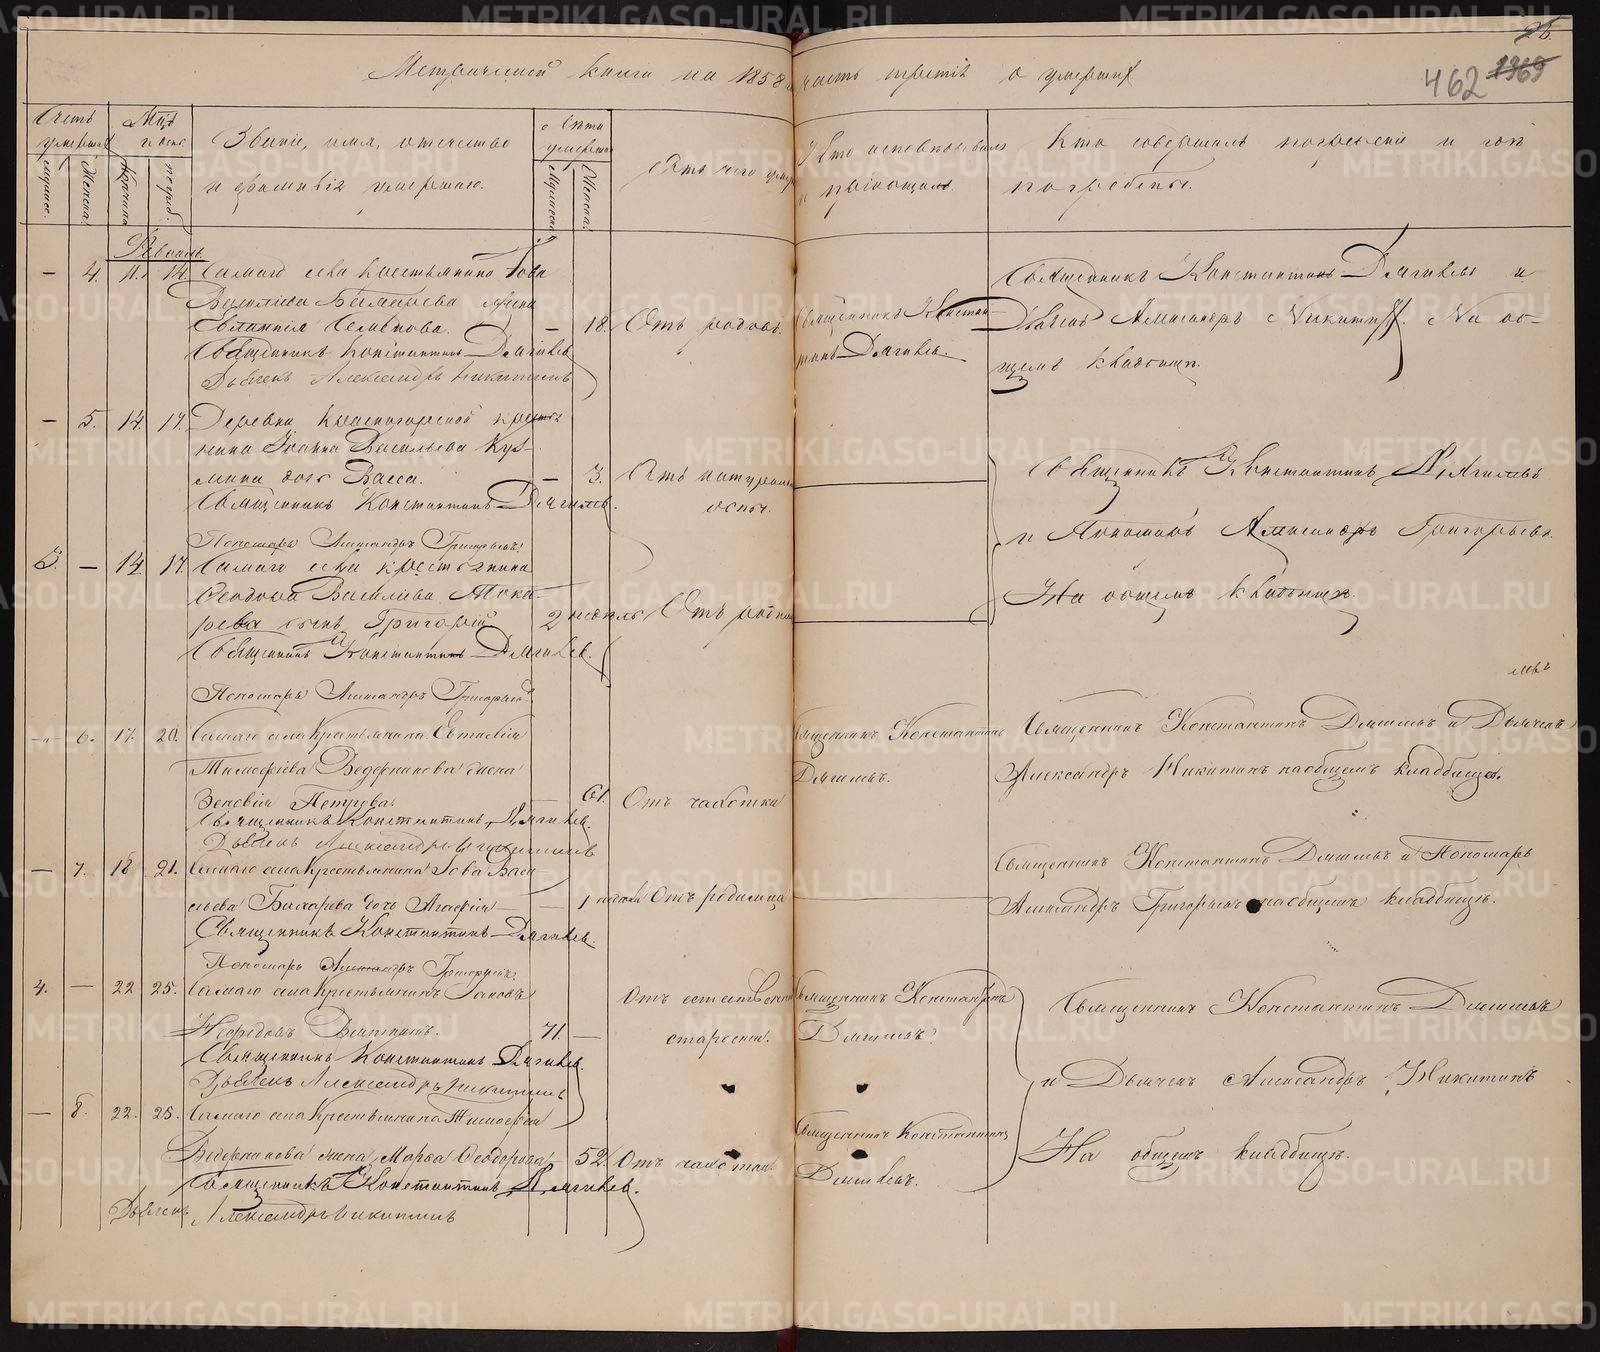 Метрической книги на 1858 часть третія о умершихъ
26.
462 1369
Счетъ умершихъ
Мужеск.
Женска.
Мѣс. и день
кончина
погреб.
Званіе, имя, отчество
и фамилія умершаго.
Лѣта умерша
Мужеска
Женска.
Отъ чего умер
Кто исповѣдывалъ
и пріобщалъ.
Кто совершалъ погребеніе и гдѣ
погребены.
Февраль
— 4. 11. 14. Самаго села крестьянина Іова
Василіева жена
Евлампія Семенова. — 18. Отъ родовъ.
Священникъ Константинъ Дягилевъ
Дьячекъ Александръ Никитинъ
Священникъ Констан-
тинъ Дягилевъ.
Священникъ Константинъ Дягилевъ и
Дьячекъ Александръ Никитинъ. На об-
щемъ кладбищѣ.
— 5. 14. 17. Деревни Красногорской крестья
нина Іоанна Васильева Куз-
мина дочь Васса. — 3. Отъ натуральн
оспы.
Священникъ Константинъ Дягилевъ.
Пономарь Александръ Григорьевъ.
Священникъ Константинъ Дягилевъ
и Пономарь Александръ Григорьевъ.
На общемъ кладбищѣ.
3. — 14. 17. Самаго села крестьянина
Ѳеодора Василіева Тока-
рева сынъ Григорій 2 недѣль Отъ родим
Священникъ Константинъ Дягилевъ.
Пономарь Александръ Григорьевъ
— 6. 17. 20. Самаго села Крестьянина Евтихія
Тимоѳеева Ведерникова жена
Зеновія Петрова. — 61. Отъ чахотки
Священникъ Константинъ Дягилевъ.
Дьячекъ Александръ Никитинъ
Священникъ Константинъ
Дягилевъ.
Священникъ Константинъ Дягилевъ и Дьячекъ
Александръ Никитинъ на общемъ кладбищѣ.
— 7. 18 21. Самаго села Крестьянина Іова Васи
льева дочь Агафія — 1 недѣли Отъ родимца
Священникъ Константинъ Дягилевъ.
Пономарь Александръ Григорьевъ.
Священникъ Константинъ Дягилевъ и Пономарь
Александръ Григорьевъ на общемъ кладбищѣ.
4. — 22 25. Самаго села Крестьянинъ Іаковъ
71. — Отъ естественн
старости.
Священникъ Константинъ Дягилевъ.
Дьячекъ Александръ Никитинъ
Священникъ Константинъ
Дягилевъ.
Священникъ Константинъ Дягилевъ
и Дьячекъ Александръ Никитинъ
На общемъ кладбищѣ.
— 8. 22. 25. Самаго села Крестьянина Тимоѳея
Ведерникова жена Марѳа Ѳеодорова 52. Отъ чахотки.
Священникъ Константинъ Дягилевъ.
Дьячекъ Александръ Никитинъ
Священникъ Константинъ
Дягилевъ.
METRIKI.GASO-URAL.RU